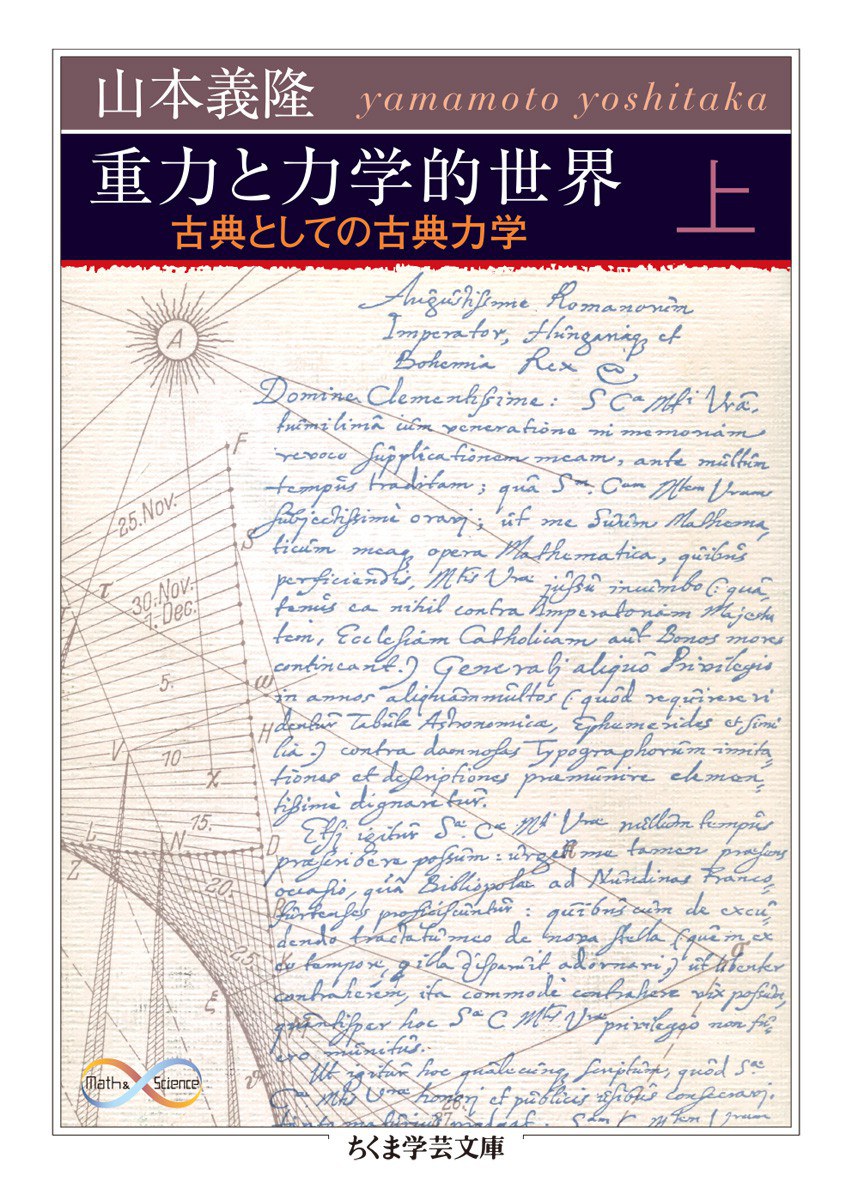 山本義隆 yamamoto yoshitaka
重力と力学的世界 上
古典としての古典力学
Augustissime Romanorũm
Imperator, Hũngariæq et
Bohemia Rex
Domine Clementissime: S Cᵃ Mᵗⁱ Vrã,
hũmilimâ cũm veneratione in memoriam
revoco sũpplicationem meam, ante mũltũm
tempũs traditam; quâ Sᵃᵐ. Cᵃᵐ Mᵗᵉᵐ Vram
sũbjectissimè oravj; ũt me sũũm Mathema,
ticũm meaq opera Mathematica, qũibũs
perficiendis, Mᵗⁱˢ Vræ jũssũ incũmbo (: qũa,
tenũs ea nihil contra Imperatoriam Majesta
tem, Ecclesiam Catholicam aũt Bonos mores
contineant.) Generalj aliqũo Privilegio
in annos aliqũammũltos (qũòd reqũirere vi
dentũr Tabũlæ Astronomicæ, Ephemerides et simi
lia) contra damnosas Typographorũm imita,
tiones et descriptiones præmũnire clemen,
tissimè dignaretũr.
Etsi igitũr Sᵃᵉ Cᵃᵉ Mᵗⁱ Vræ nũllũm tempũs
præscribere possũm: ũrget me tamen præsens
occasio, qũâ Bibliopolæ ad Nũndinas Franco,
fũrtenses proficiscũntũr: qũibũs cũm de excũ,
dendo tractatũ meo de nova stella (qũem ex
eo tempore, q illa disparũit adornavi,) ũt libenter
contraherem, ita commodè contrahere vix possũm,
qũantisper hoc Sᵃᵉ C Mᵗⁱˢ Vræ privilegio non fũ,
ero mũnitũs.
Ut igitũr hoc qũalecũnq scriptũm, qũòd Sᵃᵉ
Cᵃᵉ Mᵗⁱˢ Vræ honorj et pũblicis ũsibũs consecravj.
A
F
25. Nov.
S
τ
30. Nov.
1. Dec.
5.
ω
H
V
10
χ
15.
L
N
D
Z
20.
25.
σ
ξ
ϑ
Math & Science
ちくま学芸文庫